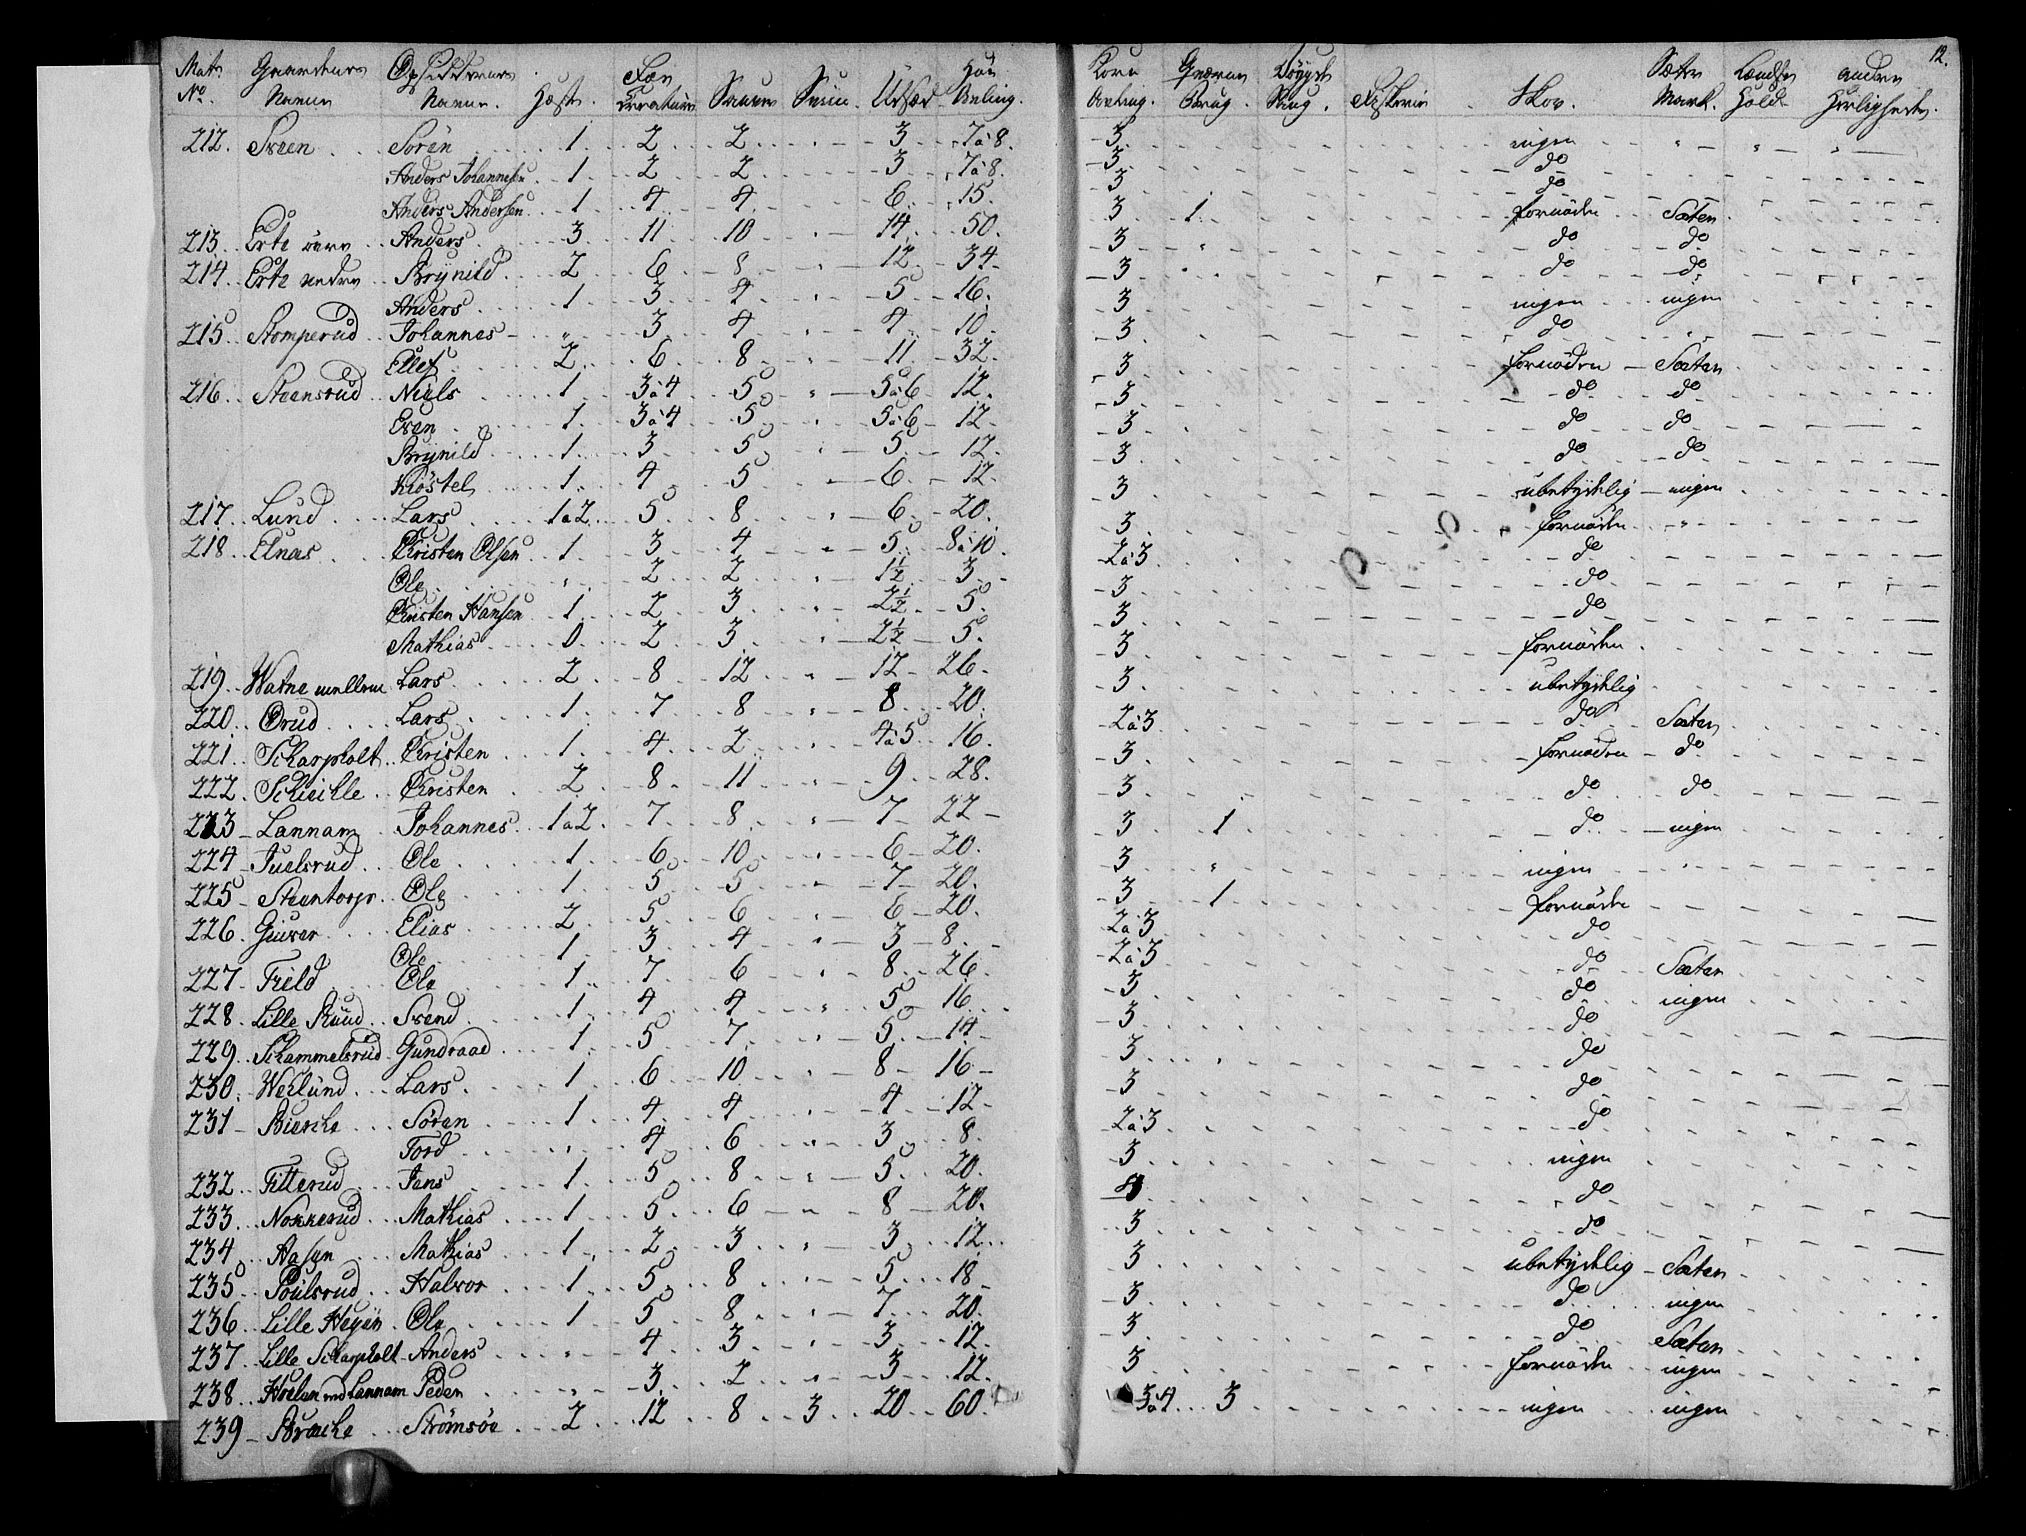 12.
Mat: Gaardens Opsiddernes Fæe Høe Korn Qværne Sæter andre
No. Navne Navne. Hæst. Creature Saueer Sviin Udsæd Avling. Avling. Brug. Brug. Fiskerie Skov. Mark. Hold Herligheder.
212. Sveen Sören 1. 2 2 " 3 7 à 8. 3 ingen " " "
Anders Johannesen 1. 2 2 3 7 à 8. 3 do
Anders Andersen 1. 4 4 6 15. 3 do
213. Erte övre Anders 3 11 10 " 14 50. 3 1. fornöden Sæter
214. Erte nedre Brynild 2 6 8 " 12 34 3 " do do
Anders 1. 3 4 " 5 16. 3 " do do
215. Stomperud Johannes " 3 4 " 4 10 3 ingen ingen
Ellef 2 6 8 11 32. 3 do "
216. Steensrud Niels 1. 3 à 4 5 " 5 à 6 12. 3 fornöden Sæter
Even 1. 3 à 4 5 " 5 à 6 12 3 do do
Brynild 1. 3 5 " 5 12. 3 do do
Kiöstel 1. 4 5 " 6 12. 3 do do
217. Lund Lars 1 à 2 5 8 " 6 20. 3 ubetydelig ingen
218. Elnæs Christen Olsen 1. 3 4 " 5 8 à 10. 3 fornöden "
Ole " 2 2 " 1½ 3 2 à 3 do
Christen Hansen 1. 2 3 " 2½ 5. 3 do
Mathias 0 2 3 " 2½ 5. 3 do
219. Watne mellem Lars 2 8 12 " 12 26. 3 fornöden
220. Örud Lars 1. 7 8 " 8 20. 3 ubetydelig
221. Scharpholt Christen 1. 4 2 " 4 à 5 16. 2 à 3 do Sæter
222. Schiehle Christen 2 8 11 " 9 28. 3 fornöden do
223 Lannam Johannes 1 à 2 7 8 " 7 22 3 do do
224 Juelsrud Ole 1. 6 10 " 6 20. 3 1 do ingen
225 Steentorp Ole 1. 5 5 " 7 20. 3 " ingen "
226. Giever Elias 2 5 6 " 6 20. 3 1 fornöden
Ole 1. 3 4 " 3 8. 2 à 3 do
227 Field Ole 1 7 6 " 8 26 2 à 3 do Sæter
228. Lille Ruud Svend 1. 4 4 " 5 16 3 do ingen
229. Schammelsrud Gundraad 1. 5 7 5 14 3 do
230. Weilund Lars 1 6 10 " 8 16 3 do
231 Biercke Sören 1 4 4 " 4 12 3 do
Tord " 4 6 " 3 8. 2 à 3 do
232 Titterud Jens 1 5 8 " 5 20. 3 ingen
233. Nokkerud Mathias 1. 5 6 " 8 20. 4 do
234 Aasen Mathias 1. 2 3 " 3 12. 3 do
235 Poulsrud Halvor 1 5 8 " 5 18 3 ubetydelig Sæter
236. Lille Heyen Ole 1 5 8 " 7 20. 3 do ingen
237. Lille Scharpholt Anders " 4 3 " 3 12. 3 do Sæter
238. Hvelen ved Lannam Peder " 3 2 " 3 12. 3 fornöden ingen
239 Bracke Strömsöe 2 12 8 3 20 60. 3 à 4 3 ingen ingen